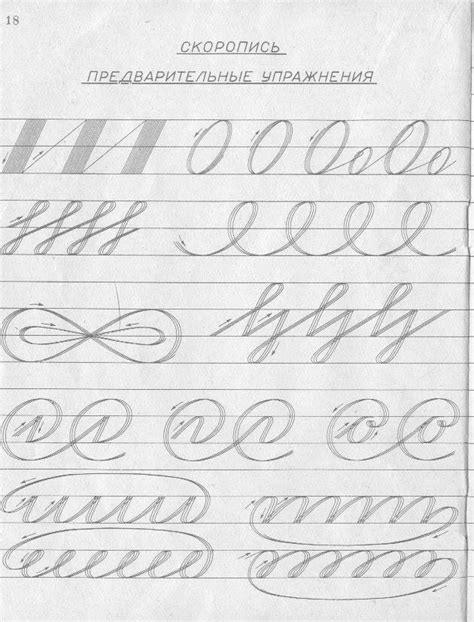 18
СКОРОПИСЬ
ПРЕДВАРИТЕЛЬНЫЕ УПРАЖНЕНИЯ